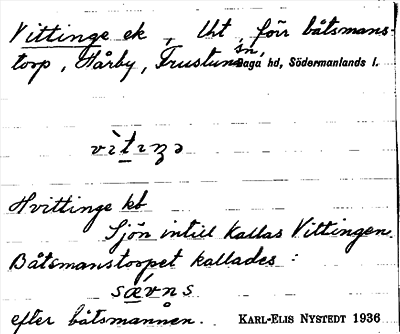 Vittinge ek, lht, förr båtsmans-
torp, Hårby, Trustuna sn,
Daga hd, Södermanlands l.
vìtıŋə
Hvittinge kb
Sjön intill kallas Vittingen.
Båtsmanstorpet kallades:
sǽvns
efter båtsmannen.
KARL-ELIS NYSTEDT 1936